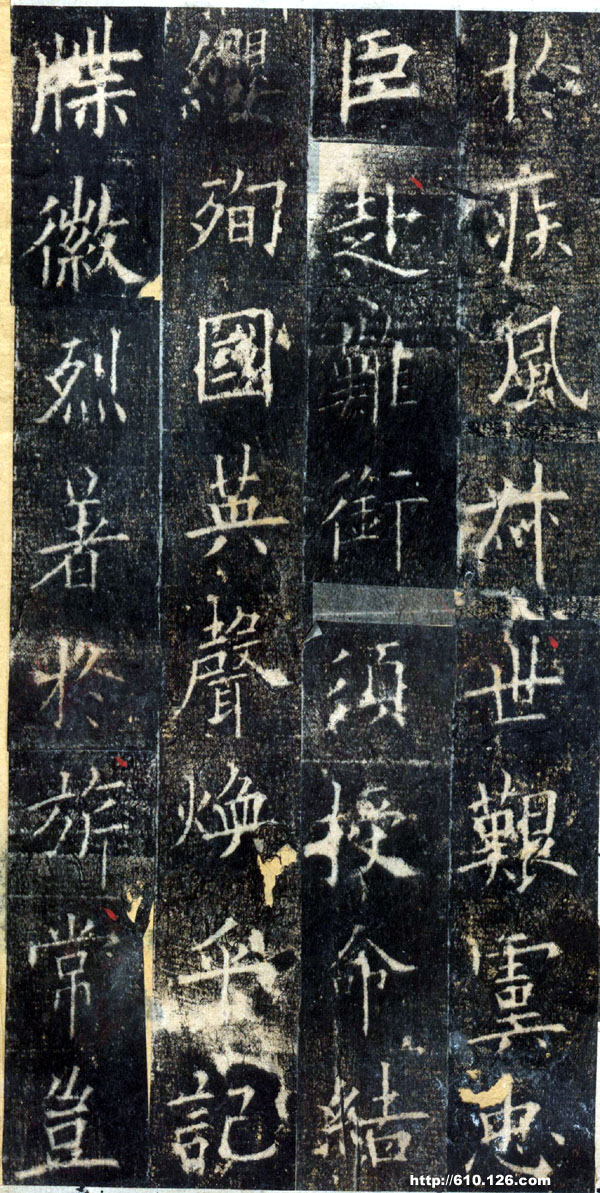 於疾風叔世艱虞忠
臣赴難銜須授命結
纓殉國英聲煥乎記
牒徽烈著於旂常豈
http://610.126.com